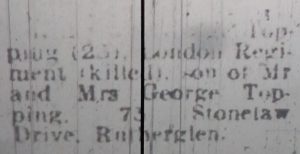 Top-
ping (23), London Regi-
ment (killed), son of Mr
and Mrs George Top-
ping, 73 Stonelaw
Drive, Rutherglen.